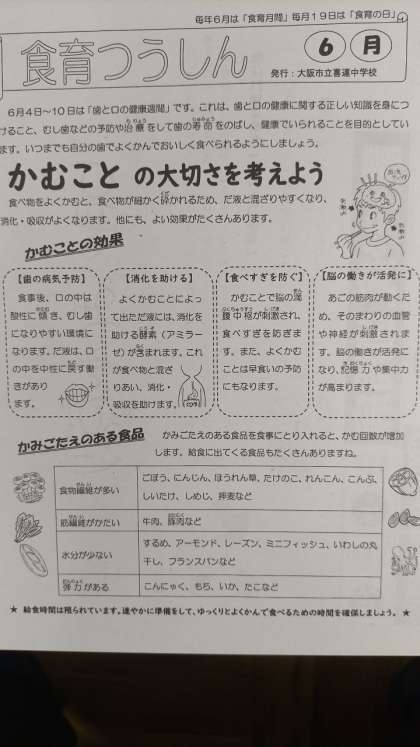 毎年6月は「食育月間」毎月19日は「食育の日」
食育つうしん
6月
発行:大阪市立喜連中学校
6月4日~10日は「歯と口の健康週間」です。これは、歯と口の健康に関する正しい知識を身につ
けること、むし歯などの予防や治療をして歯の寿命をのばし、健康でいられることを目的としてい
ます。いつまでも自分の歯でよくかんでおいしく食べられるようにしましょう。
かむこと の大切さを考えよう
食べ物をよくかむと、食べ物が細かく砕かれるため、だ液と混ざりやすくなり、
消化・吸収がよくなります。他にも、よい効果がたくさんあります。
かむことの効果
【歯の病気予防】
食事後、口の中は
酸性に傾き、むし歯
になりやすい環境に
なります。だ液は、口
の中を中性に戻す働
きがあり
ます。
【消化を助ける】
よくかむことによっ
て出ただ液には、消化を
助ける酵素(アミラー
ゼ)が含まれます。これ
が食べ物と混ざ
りあい、消化・
吸収を助けます。
【食べすぎを防ぐ】
かむことで脳の満
腹中枢が刺激され、
食べすぎを防ぎま
す。また、よくかむ
ことは早食いの予防
にもなります。
【脳の働きが活発に】
あごの筋肉が動くた
め、そのまわりの血管
や神経が刺激されま
す。脳の働きが活発に
なり、記憶力や集中力
が高まります。
かみごたえのある食品
かみごたえのある食品を食事にとり入れると、かむ回数が増加
します。給食に出てくる食品もたくさんありますね。
食物繊維が多い
ごぼう、にんじん、ほうれん草、たけのこ、れんこん、こんぶ、
しいたけ、しめじ、押麦など
筋繊維がかたい
牛肉、豚肉など
水分が少ない
するめ、アーモンド、レーズン、ミニフィッシュ、いわしの丸
干し、フランスパンなど
弾力がある
こんにゃく、もち、いか、たこなど
★ 給食時間は限られています。速やかに準備をして、ゆっくりとよくかんで食べるための時間を確保しましょう。 ★